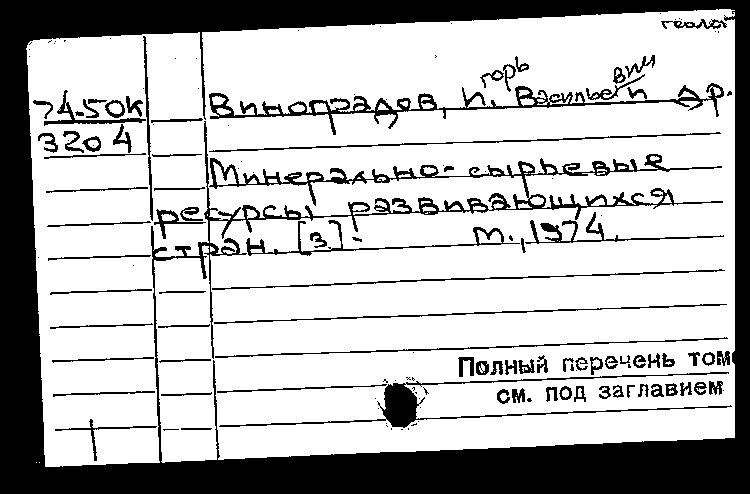 геолог
74-50к
3204
Виноградов, И.горь Васильевич и др.
Минерально-сырьевые
ресурсы развивающихся
стран. [3].  М., 1974.
Полный перечень томо
см. под заглавием